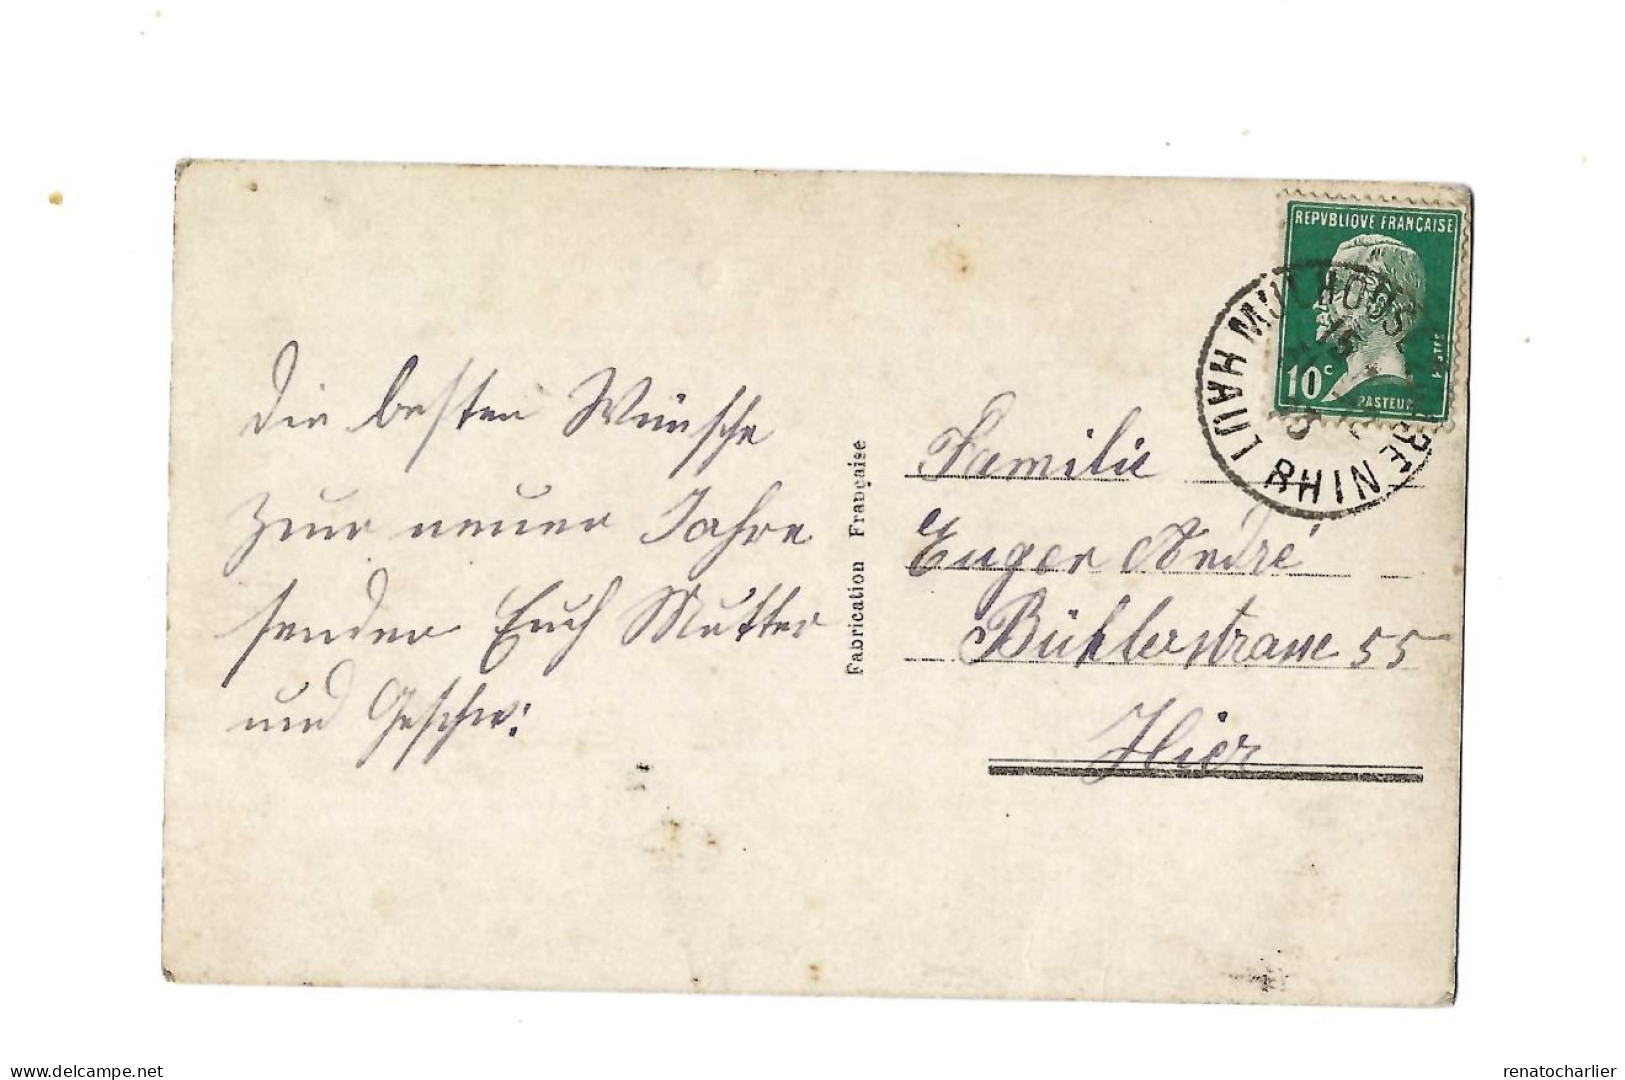 Die besten Wünsche
zum neuen Jahre
senden Euch Mutter
und Geschw:
Fabrication Française
REPVBLIQVE FRANÇAISE
10c
PASTEUR
POSTES
MULHOUSE
HAUT RHIN
Familie
Eugen André
Bühlerstrasse 55
Hier
renatocharlier